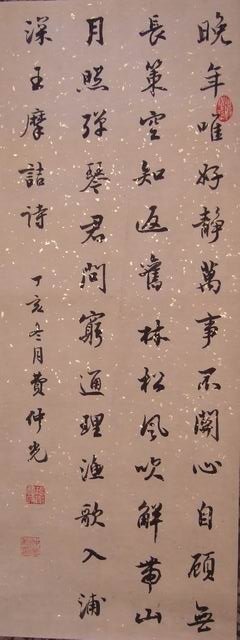 晚年唯好靜萬事不關心自顧無
長策空知返舊林松風吹解帶山
月照彈琴君問窮通理漁歌入浦
深王摩詰詩
丁亥冬月費仲光